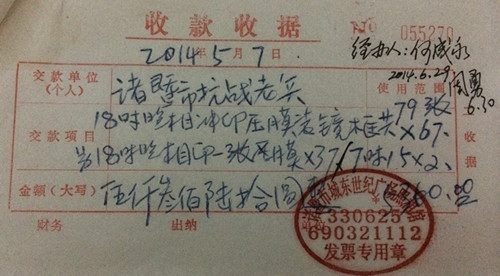 收款收据
NO 055270
2014年5月7日
经办人:何成永
2014.6.29
周勇
6.30
交款单位
(个人)
诸暨市抗战老兵
使用范围
79张
交款项目
18吋照相冲印压膜
镜框共×67.
18吋照相印一张压膜×37
7吋15×2.
收据
金额(大写)
伍仟叁佰陆拾圆
5360.00
财务
出纳
诸暨市城东世纪广场
330625
690321112
发票专用章